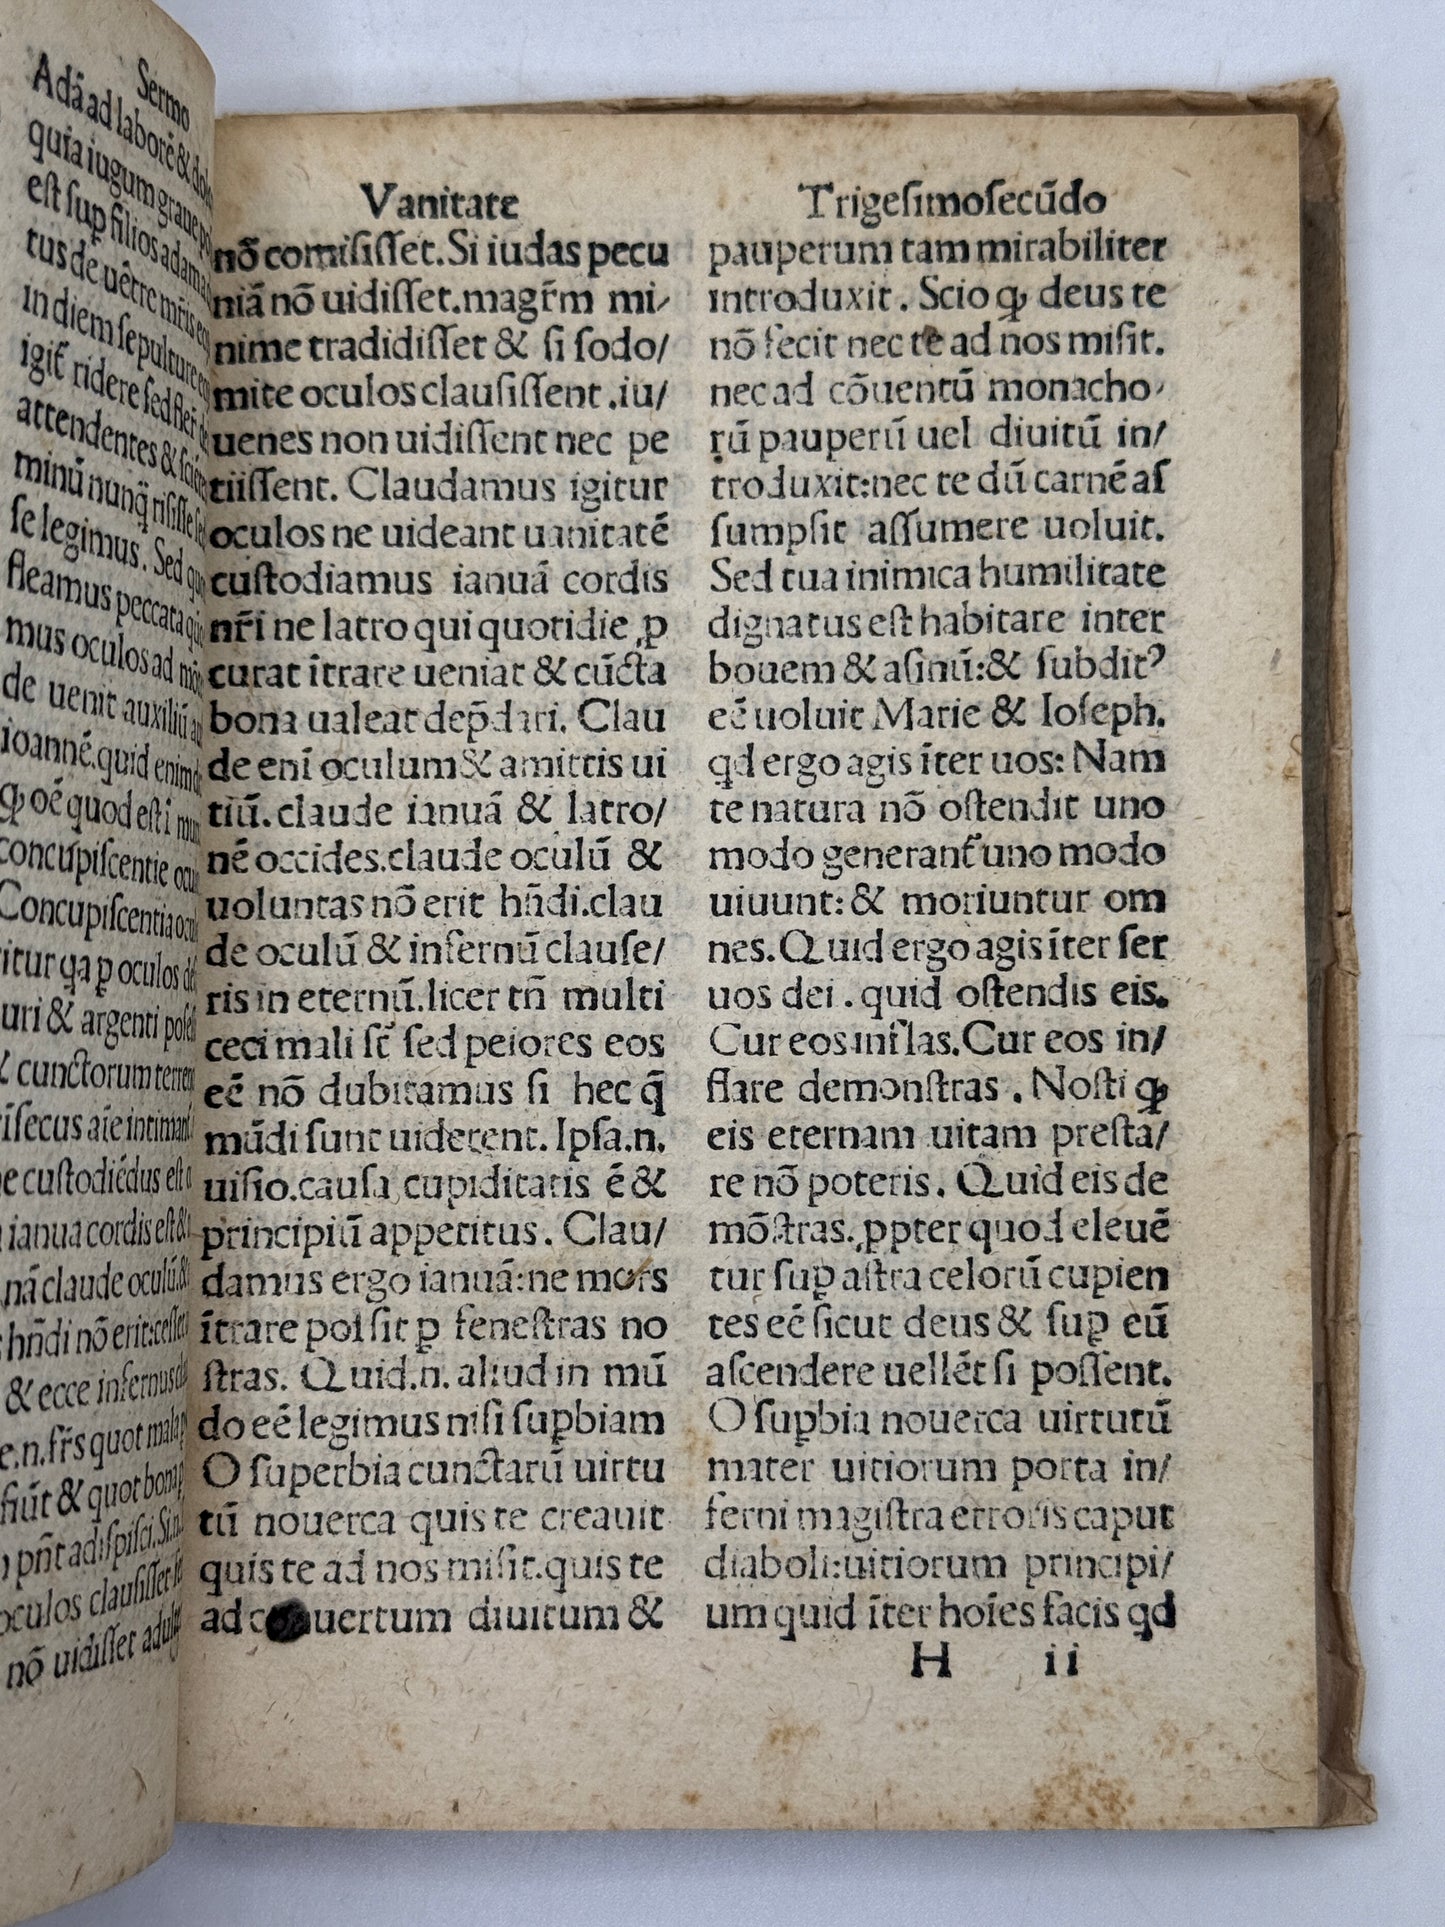 Sermo
Adā ad laborē & dolo
quia iugum graue
est sup filios adam a
tus de uētre mr̄is
in diem sepulture
igit̄ ridere sed fler̄
attendentes &
minū nunq̄ risisse
se legimus. Sed
fleamus peccata
mus oculos ad
de uenit auxiliū
ioannē.quid enim
ꝙ oē quod est i mun
concupiscentie ocu
Concupiscentia ocul
itur qa p oculos
uri & argenti
& cunctorum terren
īsecus aīe
e custodiēdus est
ianua cordis est &
nā claude oculū.&
hn̄di nō erit:
& ecce infernus
e.n.fr̄s quot mala
fiūt & quot bona
pn̄t adispisci.Si
oculos clausisset
nō uidisset
Vanitate
nō comisisſet.Si iudas pecu
niā nō uidiſſet.magr̄m mi/
nime tradidiſſet & ſi ſodo/
mite oculos clauſiſſent .iu/
uenes non uidiſſent nec pe
tiiſſent. Claudamus igitur
oculos ne uideant uanitatē
cuſtodiamus ianuā cordis
nr̄i ne latro qui quotidie ꝓ
curat ītrare ueniat & cūcta
bona ualeat dep̄dari. Clau
de enī oculum & amittis ui
tiū. claude ianuā & latro/
nē occides.claude oculū &
uoluntas nō erit hn̄di.clau
de oculū & infernū clauſe/
ris in eternū.licet tn̄ multi
ceci mali ſt̄ ſed peiores eos
eē nō dubitamus ſi hec q̄
mūdi ſunt uiderent. Ipſa.n.
uiſio.cauſa cupiditatis ē &
principiū appetitus. Clau/
damus ergo ianuā:ne mors
ītrare poſſit ꝑ feneſtras no
ſtras. Quid.n. aliud in mū
do eē legimus niſi ſuꝑbiam
O ſuperbia cunctarū uirtu
tū nouerca quis te creauit
quis te ad nos miſit.quis te
ad uertum diuitum &
Trigeſimoſecūdo
pauperum tam mirabiliter
introduxit. Scio ꝙ deus te
nō fecit nec te ad nos miſit.
nec ad cōuentū monacho/
rū pauperū uel diuitū in/
troduxit:nec te dū carnē aſ
ſumpſit aſſumere uoluit.
Sed tua inimica humilitate
dignatus eſt habitare inter
bouem & aſinū:& ſubditꝰ
eē uoluit Marie & Ioſeph.
qd ergo agis īter uos: Nam
te natura nō oſtendit uno
modo generant̄ uno modo
uiuunt: & moriuntur om
nes. Quid ergo agis īter ſer
uos dei . quid oſtendis eis.
Cur eos inflas.Cur eos in/
flare demonſtras . Noſti ꝙ
eis eternam uitam preſta/
re nō poteris. Quid eis de
mōſtras. ꝓpter quod eleuē
tur ſuꝑ aſtra celorū cupien
tes eē ſicut deus & ſuꝑ eū
aſcendere uellēt ſi poſſent.
O ſuꝑbia nouerca uirtutū
mater uitiorum porta in/
ferni magiſtra erroris caput
diaboli:uitiorum principi/
um quid īter hoīes facis qd
H ii